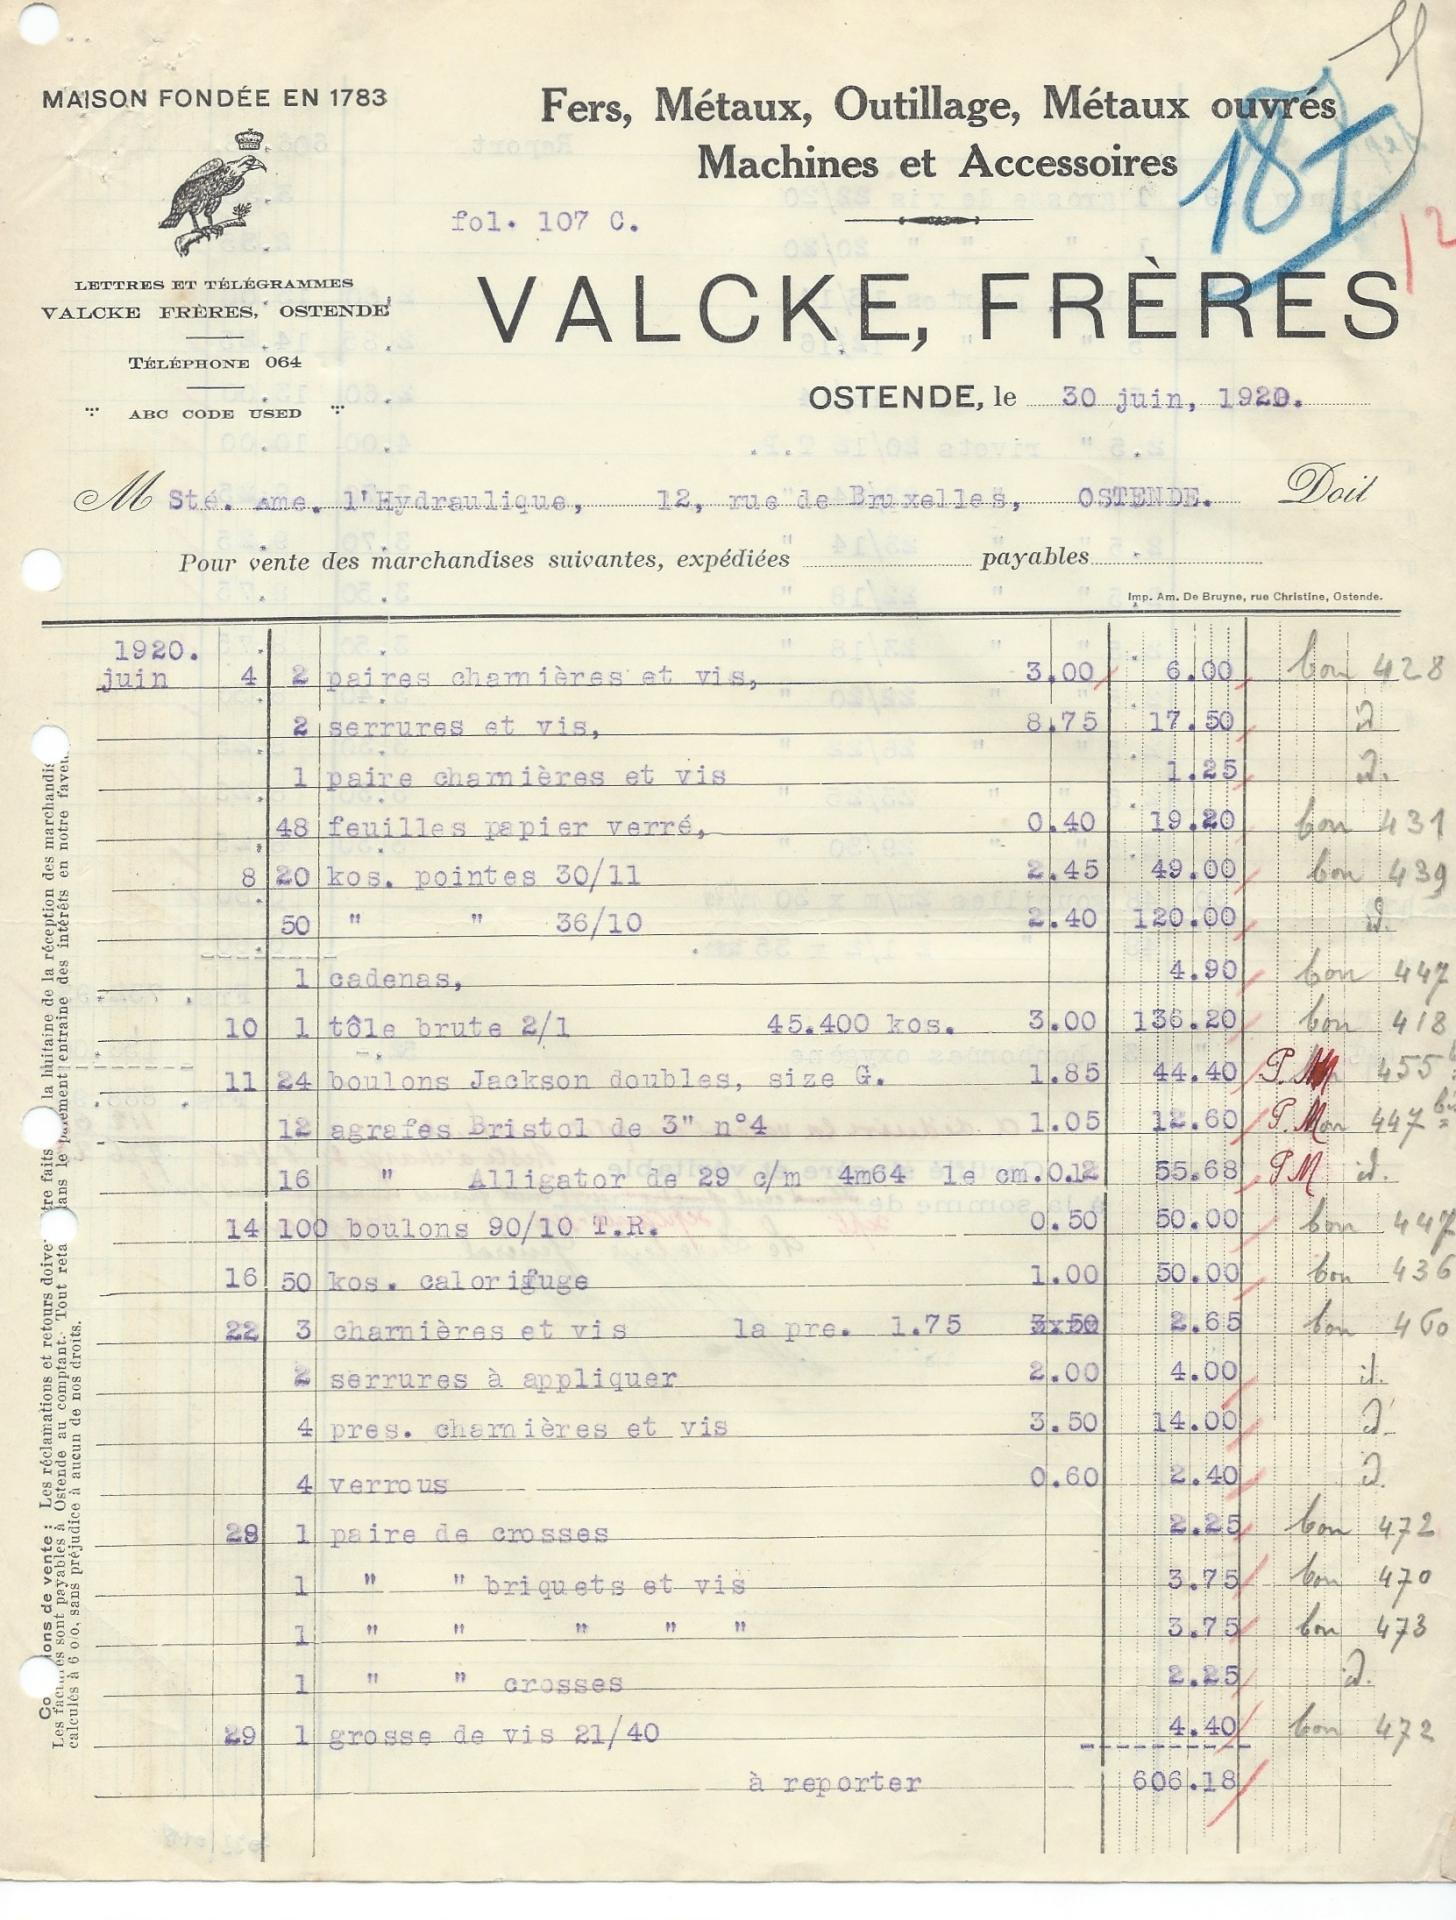 MAISON FONDÉE EN 1783
Fers, Métaux, Outillage, Métaux ouvrés
Machines et Accessoires
187
12
fol. 107 C.
LETTRES ET TÉLÉGRAMMES
VALCKE FRÈRES, OSTENDE
TÉLÉPHONE 064
ABC CODE USED
VALCKE, FRÈRES
OSTENDE, le 30 juin, 1920.
M Sté. Ame. l'Hydraulique, 12, rue de Bruxelles, OSTENDE. Doit
Pour vente des marchandises suivantes, expédiées payables
Imp. Am. De Bruyne, rue Christine, Ostende.
1920.
juin 4 2 paires charnières et vis, 3.00 6.00 bon 428
2 serrures et vis, 8.75 17.50 d.
1 paire charnières et vis 1.25 d.
48 feuilles papier verré, 0.40 19.20 bon 431
8 20 kos. pointes 30/11 2.45 49.00 bon 439
50 " " 36/10 2.40 120.00 d.
1 cadenas, 4.90 bon 447
10 1 tôle brute 2/1 45.400 kos. 3.00 136.20 bon 418
11 24 boulons Jackson doubles, size G. 1.85 44.40 P.M 455
12 agrafes Bristol de 3" n°4 1.05 12.60 P.M 447 bis
16 " Alligator de 29 c/m 4m64 le cm.0.12 55.68 PM d.
14 100 boulons 90/10 T.R. 0.50 50.00 bon 447
16 50 kos. calorifuge 1.00 50.00 bon 436
22 3 charnières et vis la pre. 1.75 2.65 bon 460
2 serrures à appliquer 2.00 4.00 d.
4 pres. charnières et vis 3.50 14.00 d.
4 verrous 0.60 2.40 d.
28 1 paire de crosses 2.25 bon 472
1 " " briquets et vis 3.75 bon 470
1 " " " " " 3.75 bon 473
1 " " crosses 2.25 d.
29 1 grosse de vis 21/40 4.40 bon 472
à reporter 606.18
Co ions de vente : Les réclamations et retours doive tre faits la huitaine de la réception des marchandis
Les fac sont payables à Ostende au comptant. Tout reta ans le paiement entraine des intérêts en notre faveu
calculés à 6 o/o, sans préjudice à aucun de nos droits.